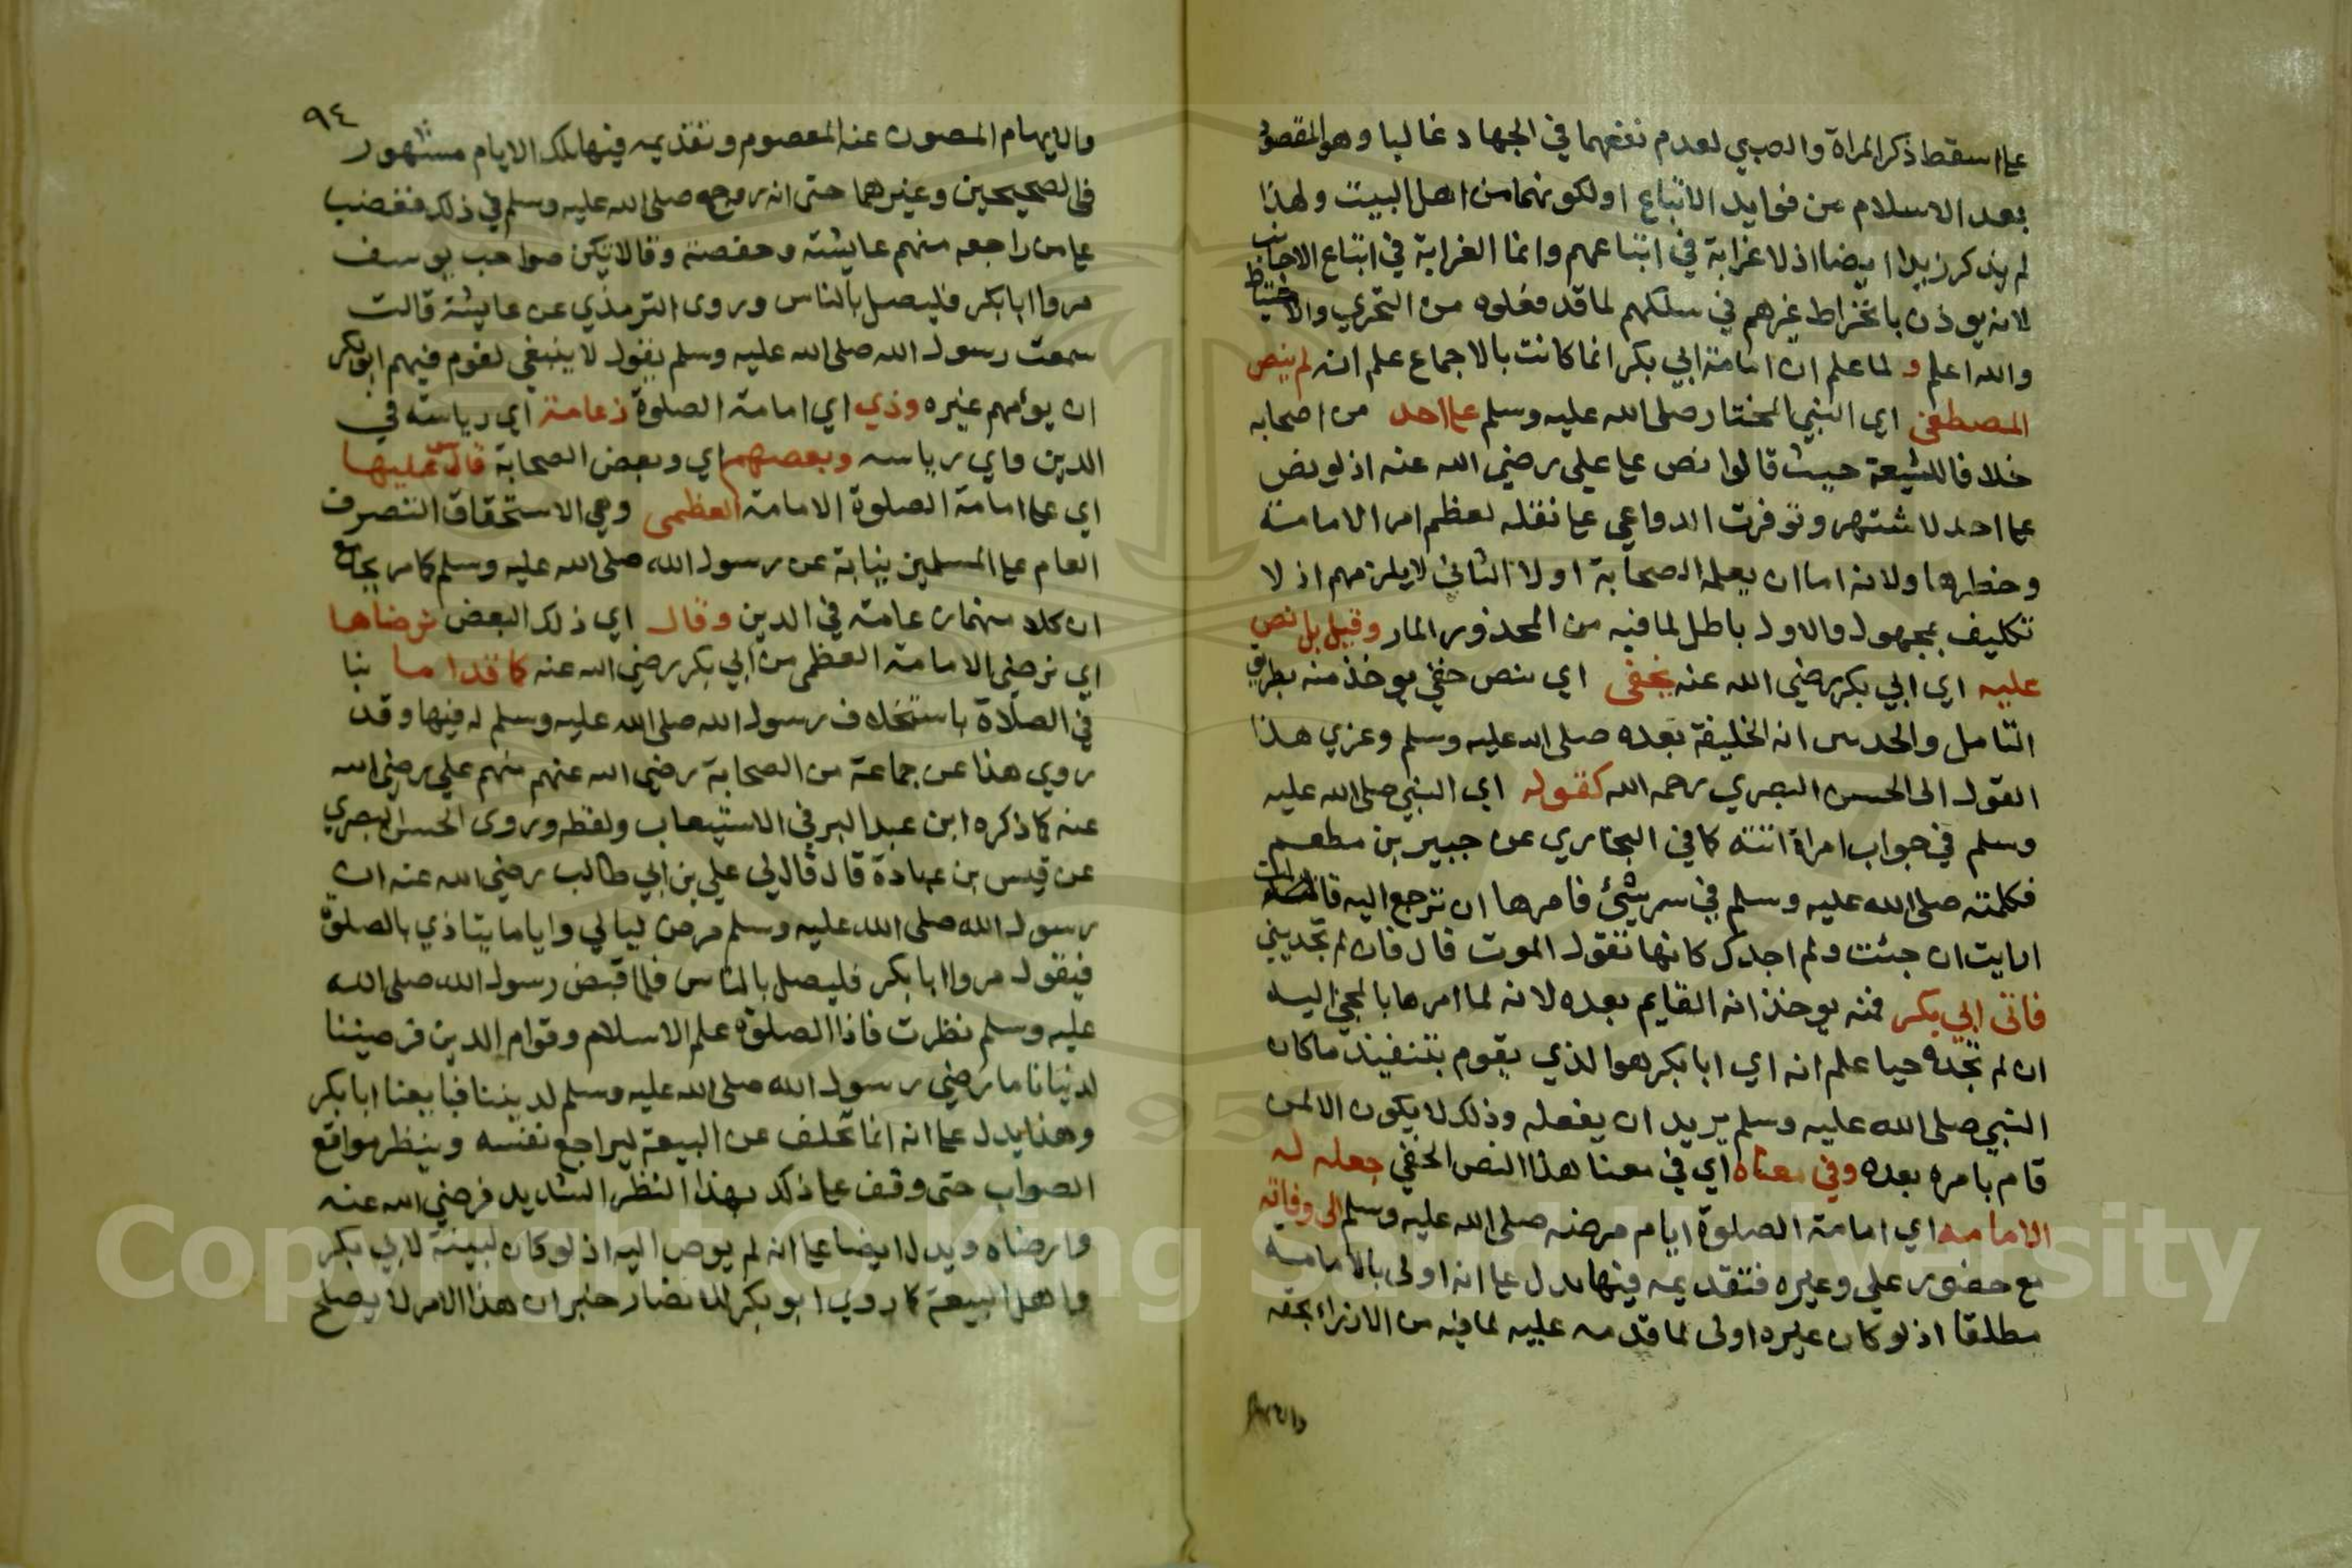 على اسقط ذكر المراة والصبي لعدم نفعهما في الجهاد غالبا وهو المقصود
بعد الاسلام من فوايد الاتباع اولكونهما من اهل البيت ولهذا
لم يذكر زيدا ايضا اذ لا غرابة في اتباعهم وانما الغرابة في اتباع الاجانب
لانه يوذن بانخراط غيرهم في سلكهم لما قد فعلوه من التحري والاحتياط
والله اعلم و لما علم ان امامة ابي بكر انما كانت بالاجماع علم انه لم ينص
المصطفى اي النبي المختار صلى الله عليه وسلم على احد من اصحابه
خلافا للشيعة حيث قالوا نص على علي رضي الله عنه اذ لو نص
على احد لاشتهر وتوفرت الدواعي على نقله لعظم امر الامامة
وخطرها ولانه اما ان يعلمه الصحابة اولا الثاني لا يلزمهم اذ لا
تكليف بمجهول والاول باطل لما فيه من المحذور المار وقيل بل نص
عليه اي ابي بكر رضي الله عنه بخفى اي بنص خفي يوخذ منه بطريق
التامل والحدس انه الخليفة بعده صلى الله عليه وسلم وعزي هذا
القول الى الحسن البصري رحمه الله كقوله اي النبي صلى الله عليه
وسلم في جواب امراة اتته كما في البخاري عن جبير بن مطعم
فكلمته صلى الله عليه وسلم في سر شيئ فامرها ان ترجع اليه قالت
ارايت ان جئت ولم اجدك كانها تقول الموت قال فان لم تجديني
فاتى ابي بكر فمنه يوخذ انه القايم بعده لانه لما امرها بالمجئ اليه
ان لم تجده حيا علم انه اي ابا بكر هو الذي يقوم بتنفيذ ما كان
النبي صلى الله عليه وسلم يريد ان يفعله وذلك لا يكون الا لمن
قام بامره بعده وفي معناه اي في معنا هذا النص الخفي جعله له
الامامه اي امامة الصلوة ايام مرضه صلى الله عليه وسلم الى وفاته
مع حضور علي وغيره فتقديمه فيها يدل على انه اولى بالامامة
مطلقا اذ لو كان غيره اولى لما قدمه عليه لما فيه من الازراء بحقه
٩٤
والايهام المصون عنه المعصوم وتقديمه فيها تلك الايام مشهور
في الصحيحين وغيرهما حتى انه روجع صلى الله عليه وسلم في ذلك فغضب
على من راجعه منهم عايشة وحفصة وقال لانتكن صواحب يوسف
مروا ابا بكر فليصل بالناس وروى الترمذي عن عايشة قالت
سمعت رسول الله صلى الله عليه وسلم يقول لا ينبغي لقوم فيهم ابو بكر
ان يؤمهم غيره وذي اي امامة الصلوة زعامة اي رياسة في
الدين واي رياسه وبعضهم اي وبعض الصحابة قاس عليها
اي على امامة الصلوة الامامة العظمى وهي الاستحقاق التصرف
العام على المسلمين نيابة عن رسول الله صلى الله عليه وسلم كما مر بجامع
ان كلا منهما زعامة في الدين وقال اي ذلك البعض نرضاها
اي نرضى الامامة العظمى من ابي بكر رضي الله عنه كما قدا ما بنا
في الصلاة باستخلاف رسول الله صلى الله عليه وسلم له فيها وقد
روي هذا عن جماعة من الصحابة رضي الله عنهم منهم علي رضي الله
عنه كما ذكره ابن عبد البر في الاستيعاب ولفظه وروى الحسن البصري
عن قيس بن عبادة قال قال لي علي بن ابي طالب رضي الله عنه ان
رسول الله صلى الله عليه وسلم مرض ليالي واياما يتاذي بالصلوة
فيقول مروا ابا بكر فليصل بالناس فلما قبض رسول الله صلى الله
عليه وسلم نظرت فاذا الصلوة علم الاسلام وقوام الدين فرضينا
لدنيانا ما رضي رسول الله صلى الله عليه وسلم لديننا فبايعنا ابا بكر
وهذا يدل على انه انما تخلف عن البيعة ليراجع نفسه وينظر مواقع
الصواب حتى وقف على ذلك بهذا النظر الشديد فرضي الله عنه
وارضاه ويدل ايضا على انه لم يوص اليه اذ لو كان لبينه لابي بكر
واهل البيعة كما روي ابو بكر للانصار خبر ان هذا الامر لا يصلح
Copyright © King Saud University